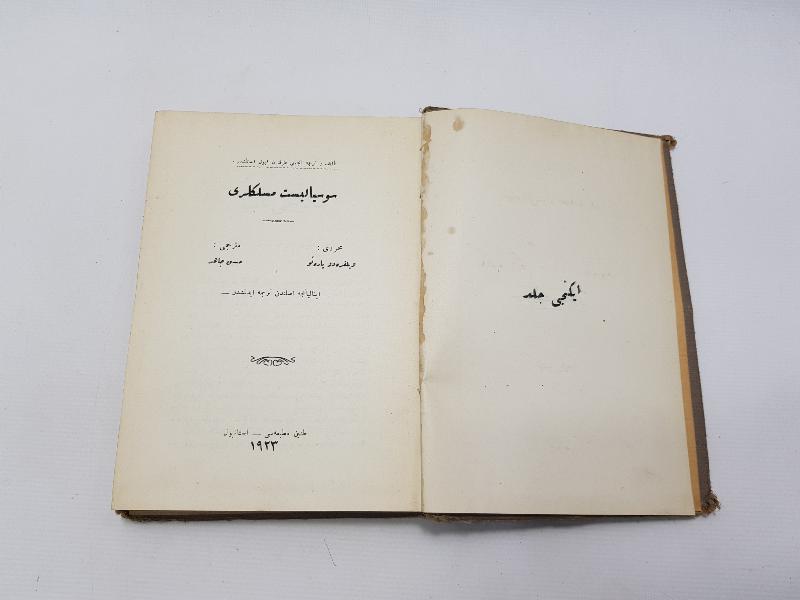 ایکنجی جلد
سوسیالیست مسلکلری
محرری :
مترجمی :
ویلفره دو پاره تو
حسین جاهد
ایتالیانجه اصلندن ترجمه ایدلمشدر —
طنین مطبعه سی — استانبول
١٩٢٣